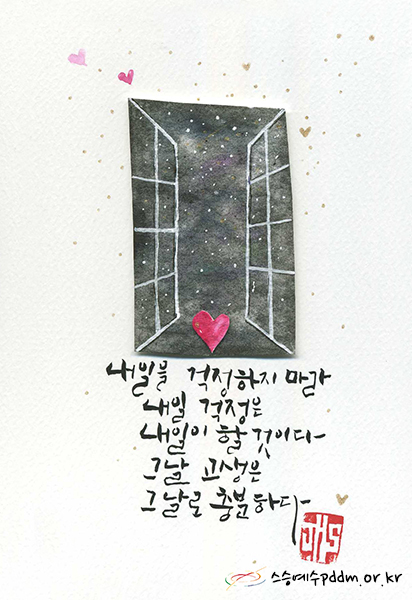 내일을 걱정하지 마라
내일 걱정은
내일이 할 것이다
그날 고생은
그날로 충분하다
JHS
스승예수pddm.or.kr